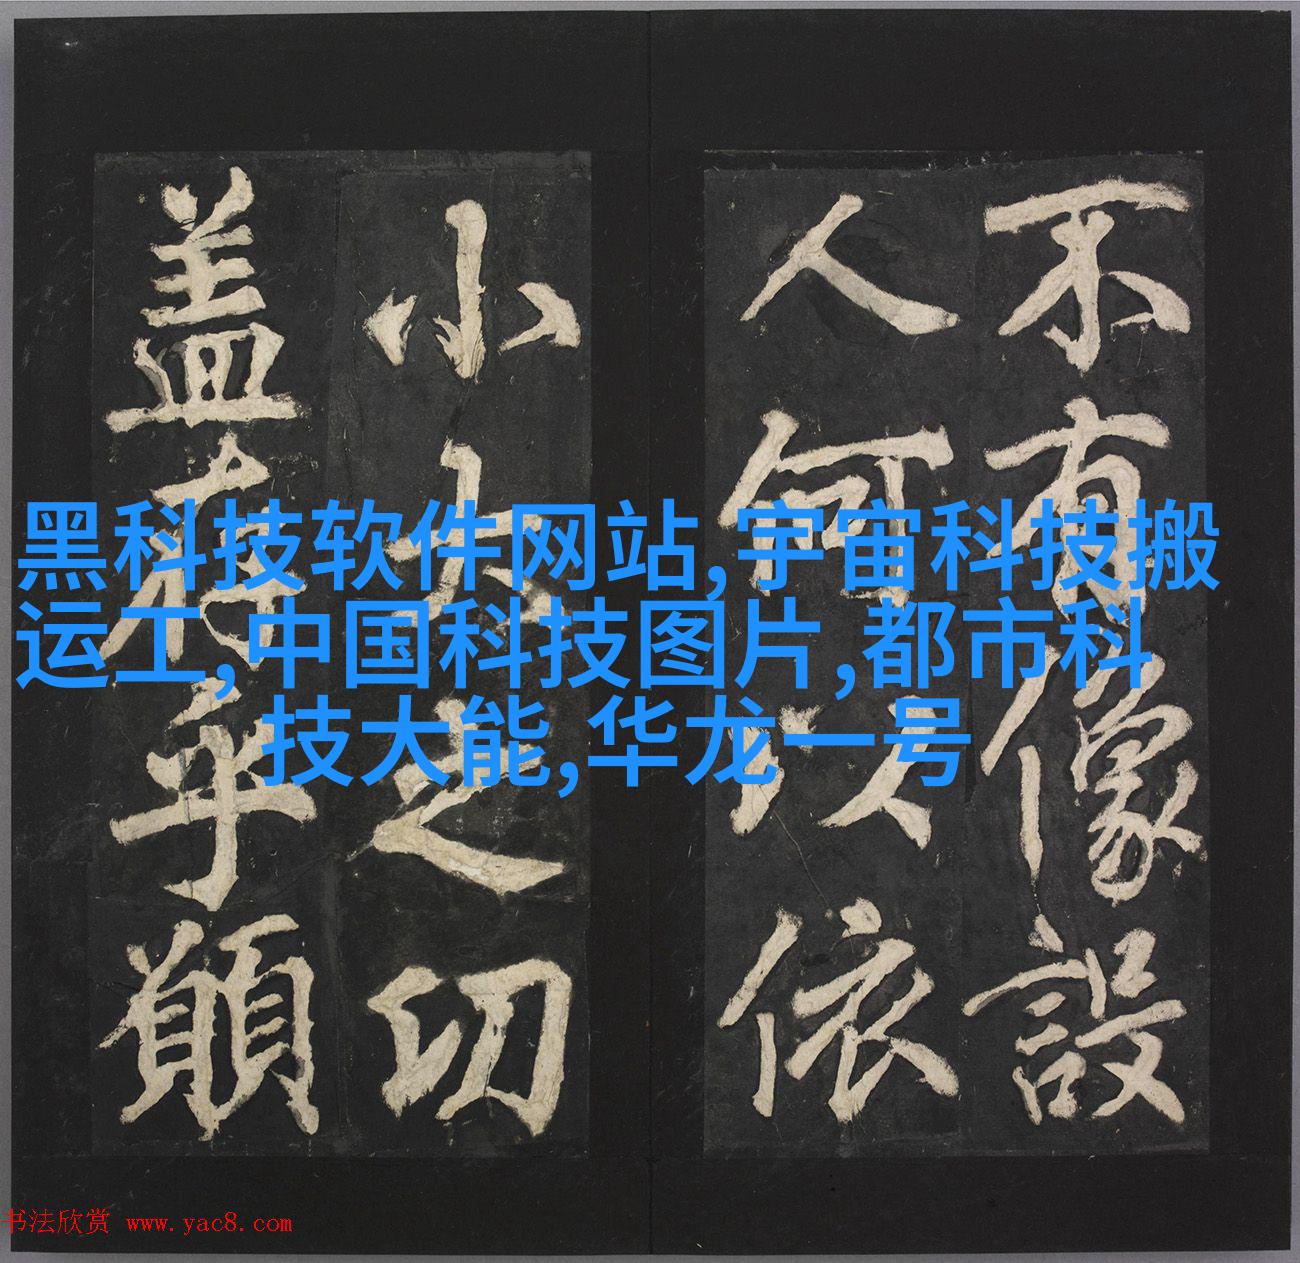 不有像設
人何以依
小大之切
盖乎
黑科技软件网站,宇宙科技搬
运工,中国科技图片,都市科
技大能,华龙一号
书法欣赏 www.yac8.com